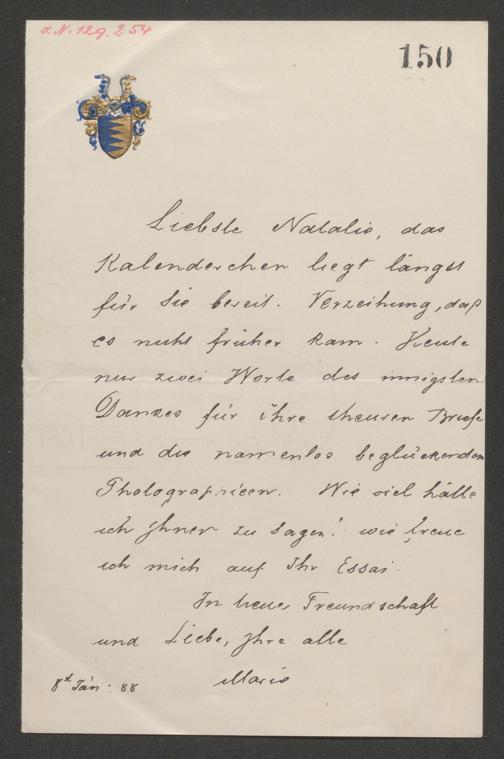 J.N. 129.254
150
Liebste Natalie, das
Kalenderchen liegt längst
für Sie bereit. Verzeihung, daß
es nicht früher kam. Heute
nur zwei Worte des innigsten
Dankes für ihre theuren Briefe
und die namenlos beglückenden
Photographieen. Wie viel hätte
ich Ihnen zu sagen! wie freue
ich mich auf Ihr Essai.
In treuer Freundschaft
und Liebe, Ihre alte
Marie
8t Jän. 88